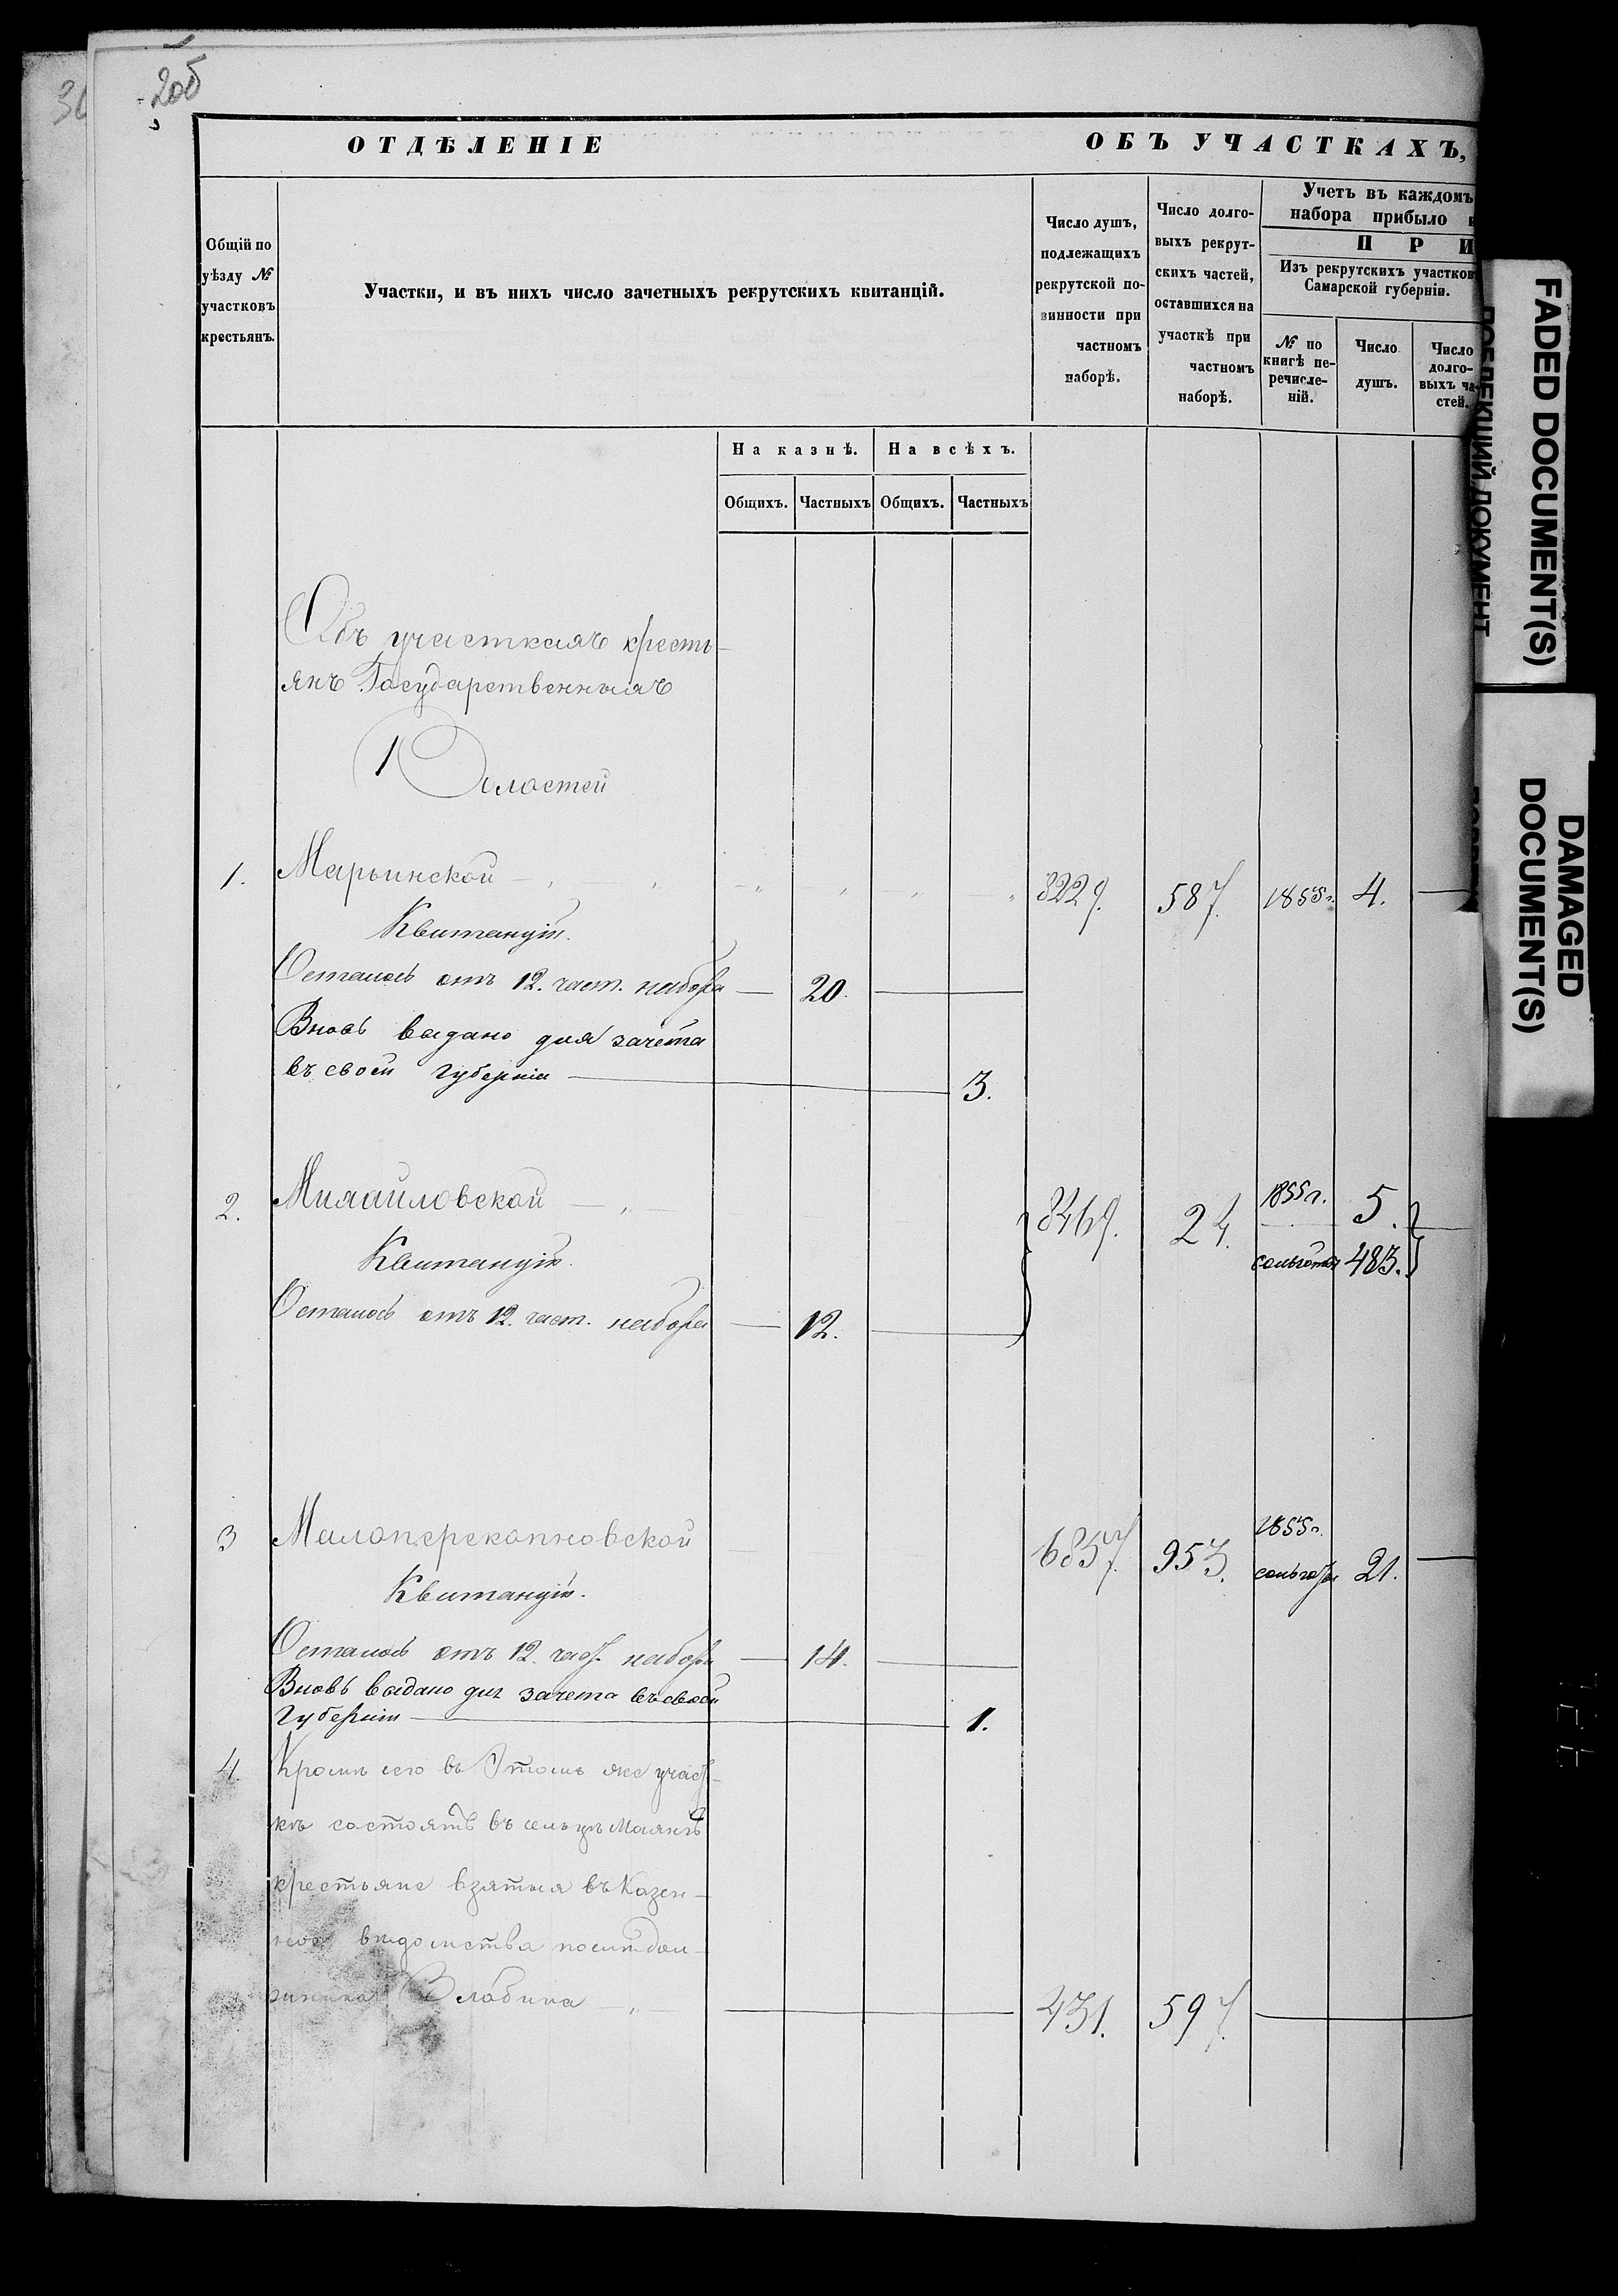 2об
ОТДѢЛЕНІЕ ОБЪ УЧАСТКАХЪ,
Общій по
уѣзду №
участковъ
крестьянъ.
Участки, и въ нихъ число зачетныхъ рекрутскихъ квитанцій.
Число душъ,
подлежащихъ
рекрутской по-
винности при
частномъ
наборѣ.
Число долго-
выхъ рекрут-
скихъ частей,
оставшихся на
участкѣ при
частномъ
наборѣ.
Учетъ въ каждомъ
набора прибыло
П Р И
Изъ рекрутскихъ участков
Самарской губерніи.
№ по
книгѣ пе-
речисле-
ній.
Число
душъ.
Число
долго-
выхъ ча-
стей.
На казнѣ. На всѣхъ.
Общихъ. Частныхъ Общихъ. Частныхъ
Объ участкахъ кресть-
янъ Государственныхъ
Волостей
1. Марьинской 8229. 587. 1855г. 4.
Квитанцій.
Осталось отъ 12. част. набора 20.
Вновь выдано для зачета
въ своей губерніи 3.
2. Михайловской 8469. 24. 1855г. 5.
483.
Квитанцій.
Осталось отъ 12. част. набора 12.
3 Малоперекопновской 6857. 953. 1855г.
21.
Квитанцій.
Осталось отъ 12. част. набора 14.
Вновь выдано для зачета въ своей
губерніи 1.
4. Кромѣ сего въ Этомъ же участ-
кѣ состоятъ въ сельцѣ Маянгѣ
крестьяне взятыя въ Казен-
ное вѣдомства
Злобина 431. 597.
FADED DOCUMENT(S)
ДОКУМЕНТ
DAMAGED
DOCUMENT(S)